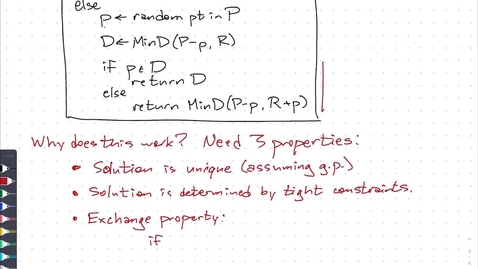 else
p ← random pt in P
D ← MinD(P-p, R)
if p ∈ D
return D
else
return MinD(P-p, R+p)
Why does this work? Need 3 properties:
• Solution is unique (assuming g.p.)
• Solution is determined by tight constraints.
• Exchange property:
if